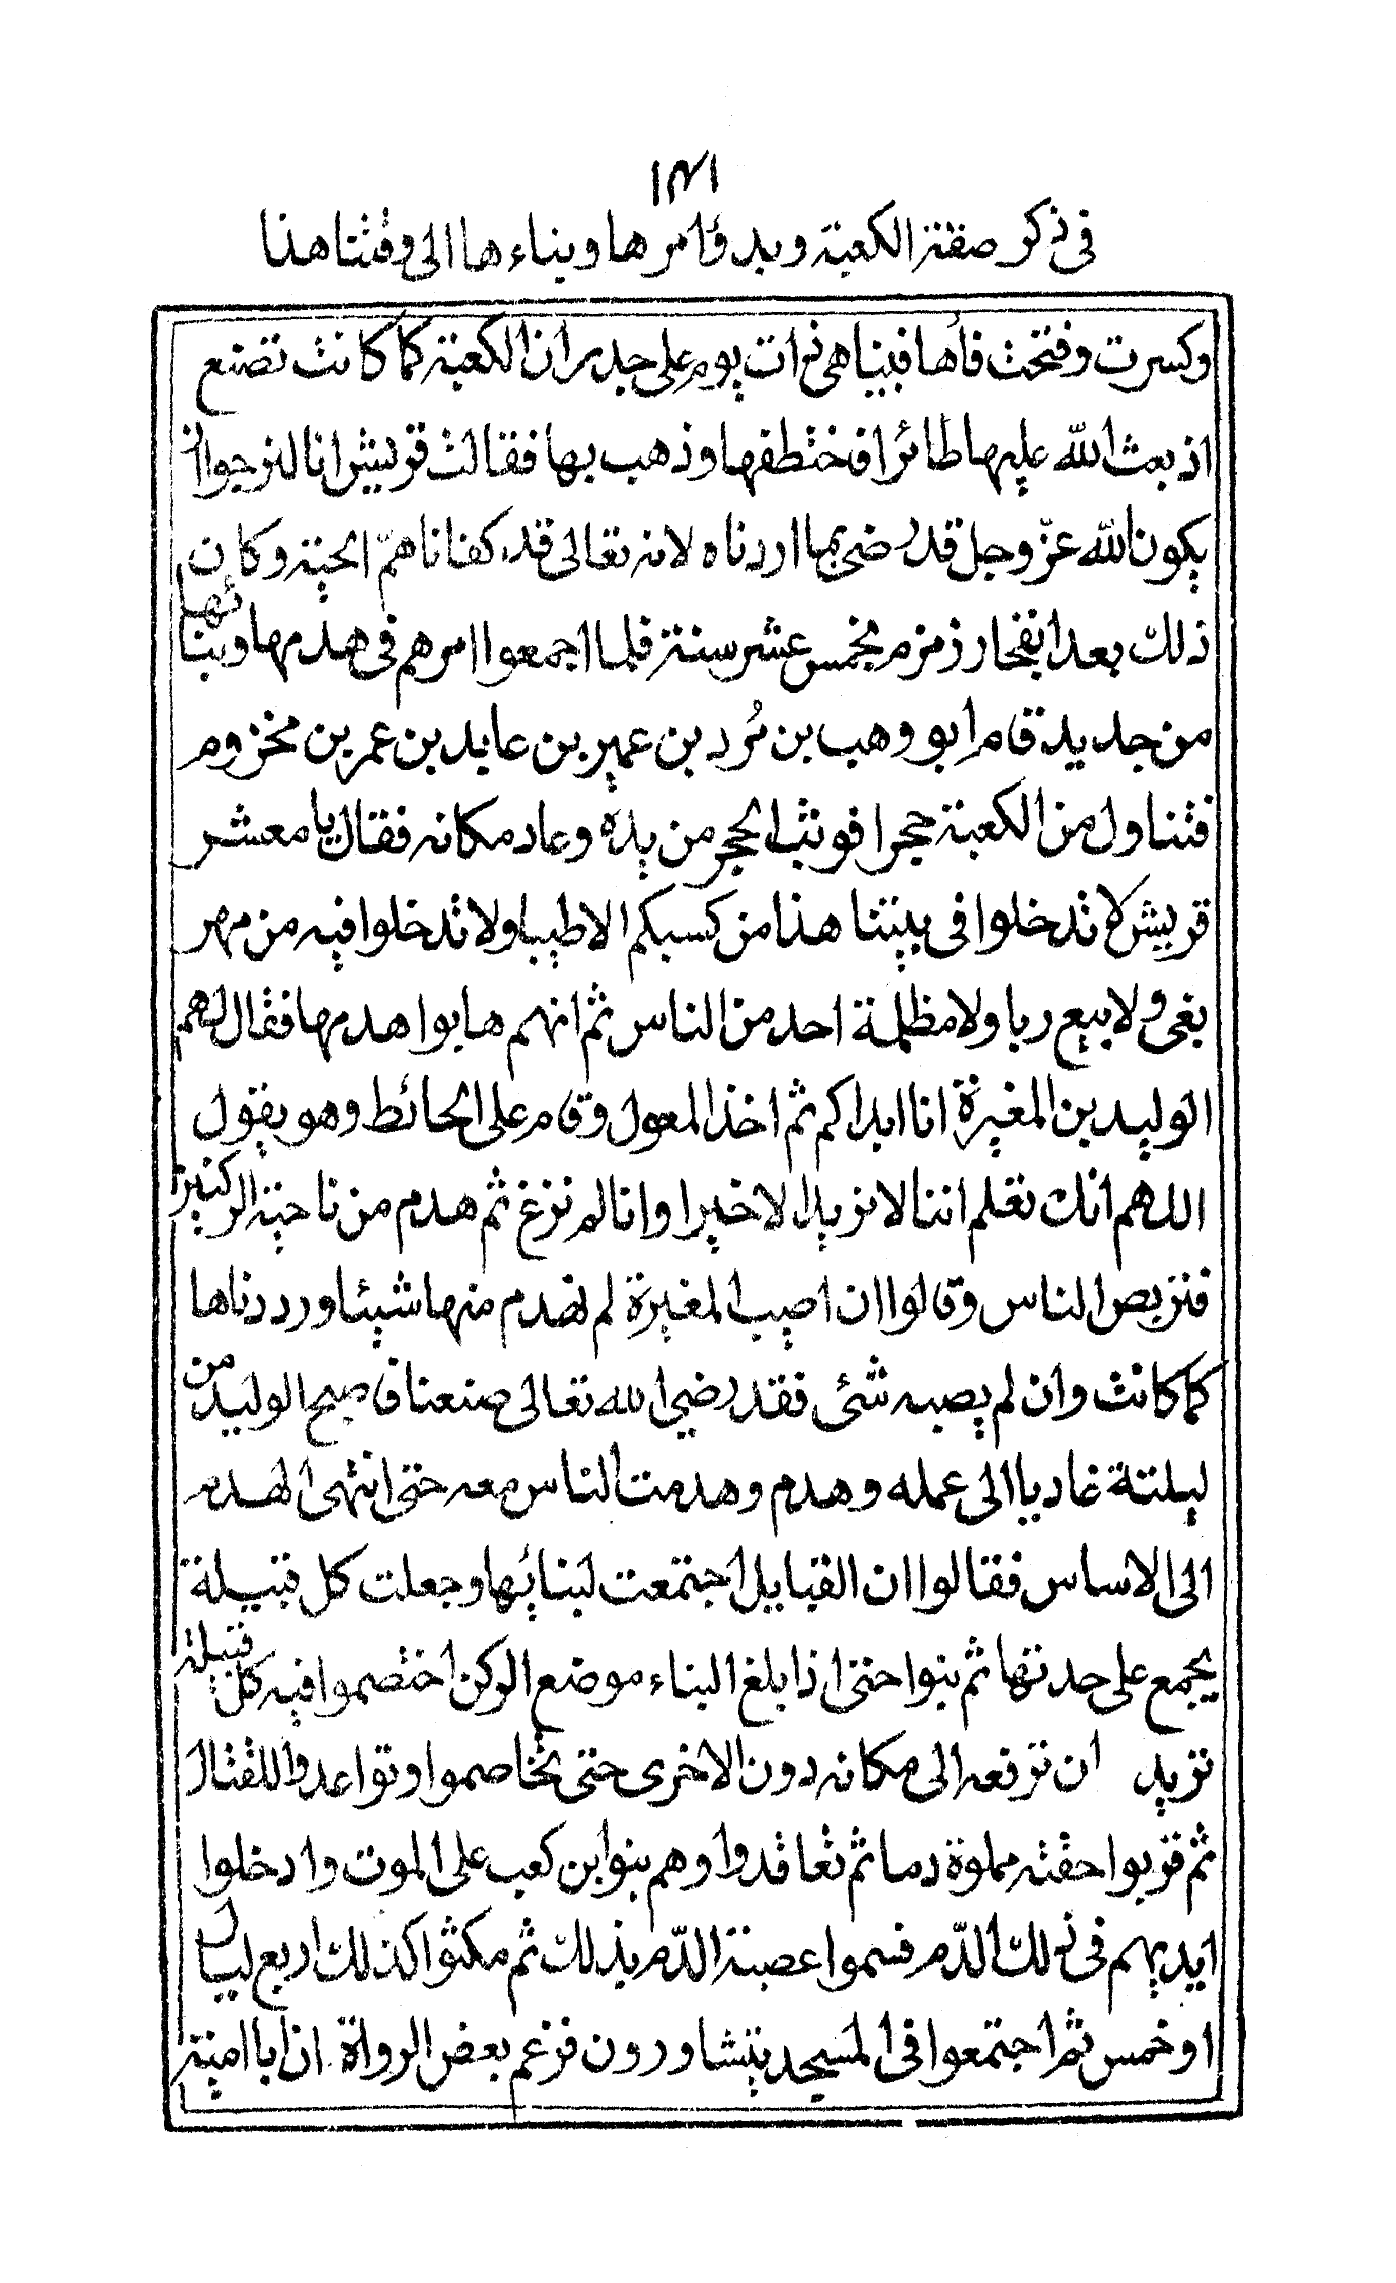 ١٣١
في ذكر صفة الكعبة وبدؤ امرها وبناءها الى وقتنا هذا
وكسرت وفتحت فاها فبينا هي ذات يوم على جدران الكعبة كما كانت تصنع
اذ بعث الله عليها طائرا فاختطفها وذهب بها فقالت قريش انا لنرجوا ان
يكون الله عز وجل قد رضى بما اردناه لانه تعالى قد كفانا همّ الحية وكان
ذلك بعد انفجار زمزم بخمس عشر سنة فلما اجمعوا امرهم في هدمها وبنائها
من جديد قام ابو وهب بن عمير بن عايد بن عمر بن مخزوم
فتناول من الكعبة حجرا فوثب الحجر من يده وعاد مكانه فقال يا معشر
قريش لا تدخلوا في بيتنا هذا من كسبكم الا طيبا ولا تدخلوا فيه من مهر
بغى ولا بيع ربا ولا مظلمة احد من الناس ثم انهم هابوا هدمها فقال لهم
الوليد بن المغيرة انا ابداكم ثم اخذ المعول وقام على الحائط وهو يقول
اللهم انك تعلم اننا لا نريد الا خيرا وانا لم نزغ ثم هدم من ناحية الركنين
فتربص الناس وقالوا ان اصيب المغيرة لم نهدم منها شيئا ورددناها
كما كانت وان لم يصبه شئى فقد رضي الله تعالى صنعنا فاصبح الوليد من
ليلتة غاديا الى عمله وهدم وهدمت الناس معه حتى انتهى الهدم
الى الاساس فقالوا ان القبايل اجتمعت لبنائها وجعلت كل قبيلة
يجمع على حدتها ثم بنوا حتى اذا بلغ البناء موضع الركن اختصموا فيه كل قبيلة
تريد ان ترفعه الى مكانه دون الاخرى حتى تخاصموا وتواعدوا للقتال
ثم قربوا حفنه مملوة دما ثم تعاقدوا وهم بنوا بن كعب على الموت وادخلوا
ايديهم في ذلك الدّم فسموا عصبة الدّم بذلك ثم مكثوا كذلك اربع ليال
او خمس ثم اجتمعوا في المسجد يتشاورون فزعم بعض الرواة ان ابا امية